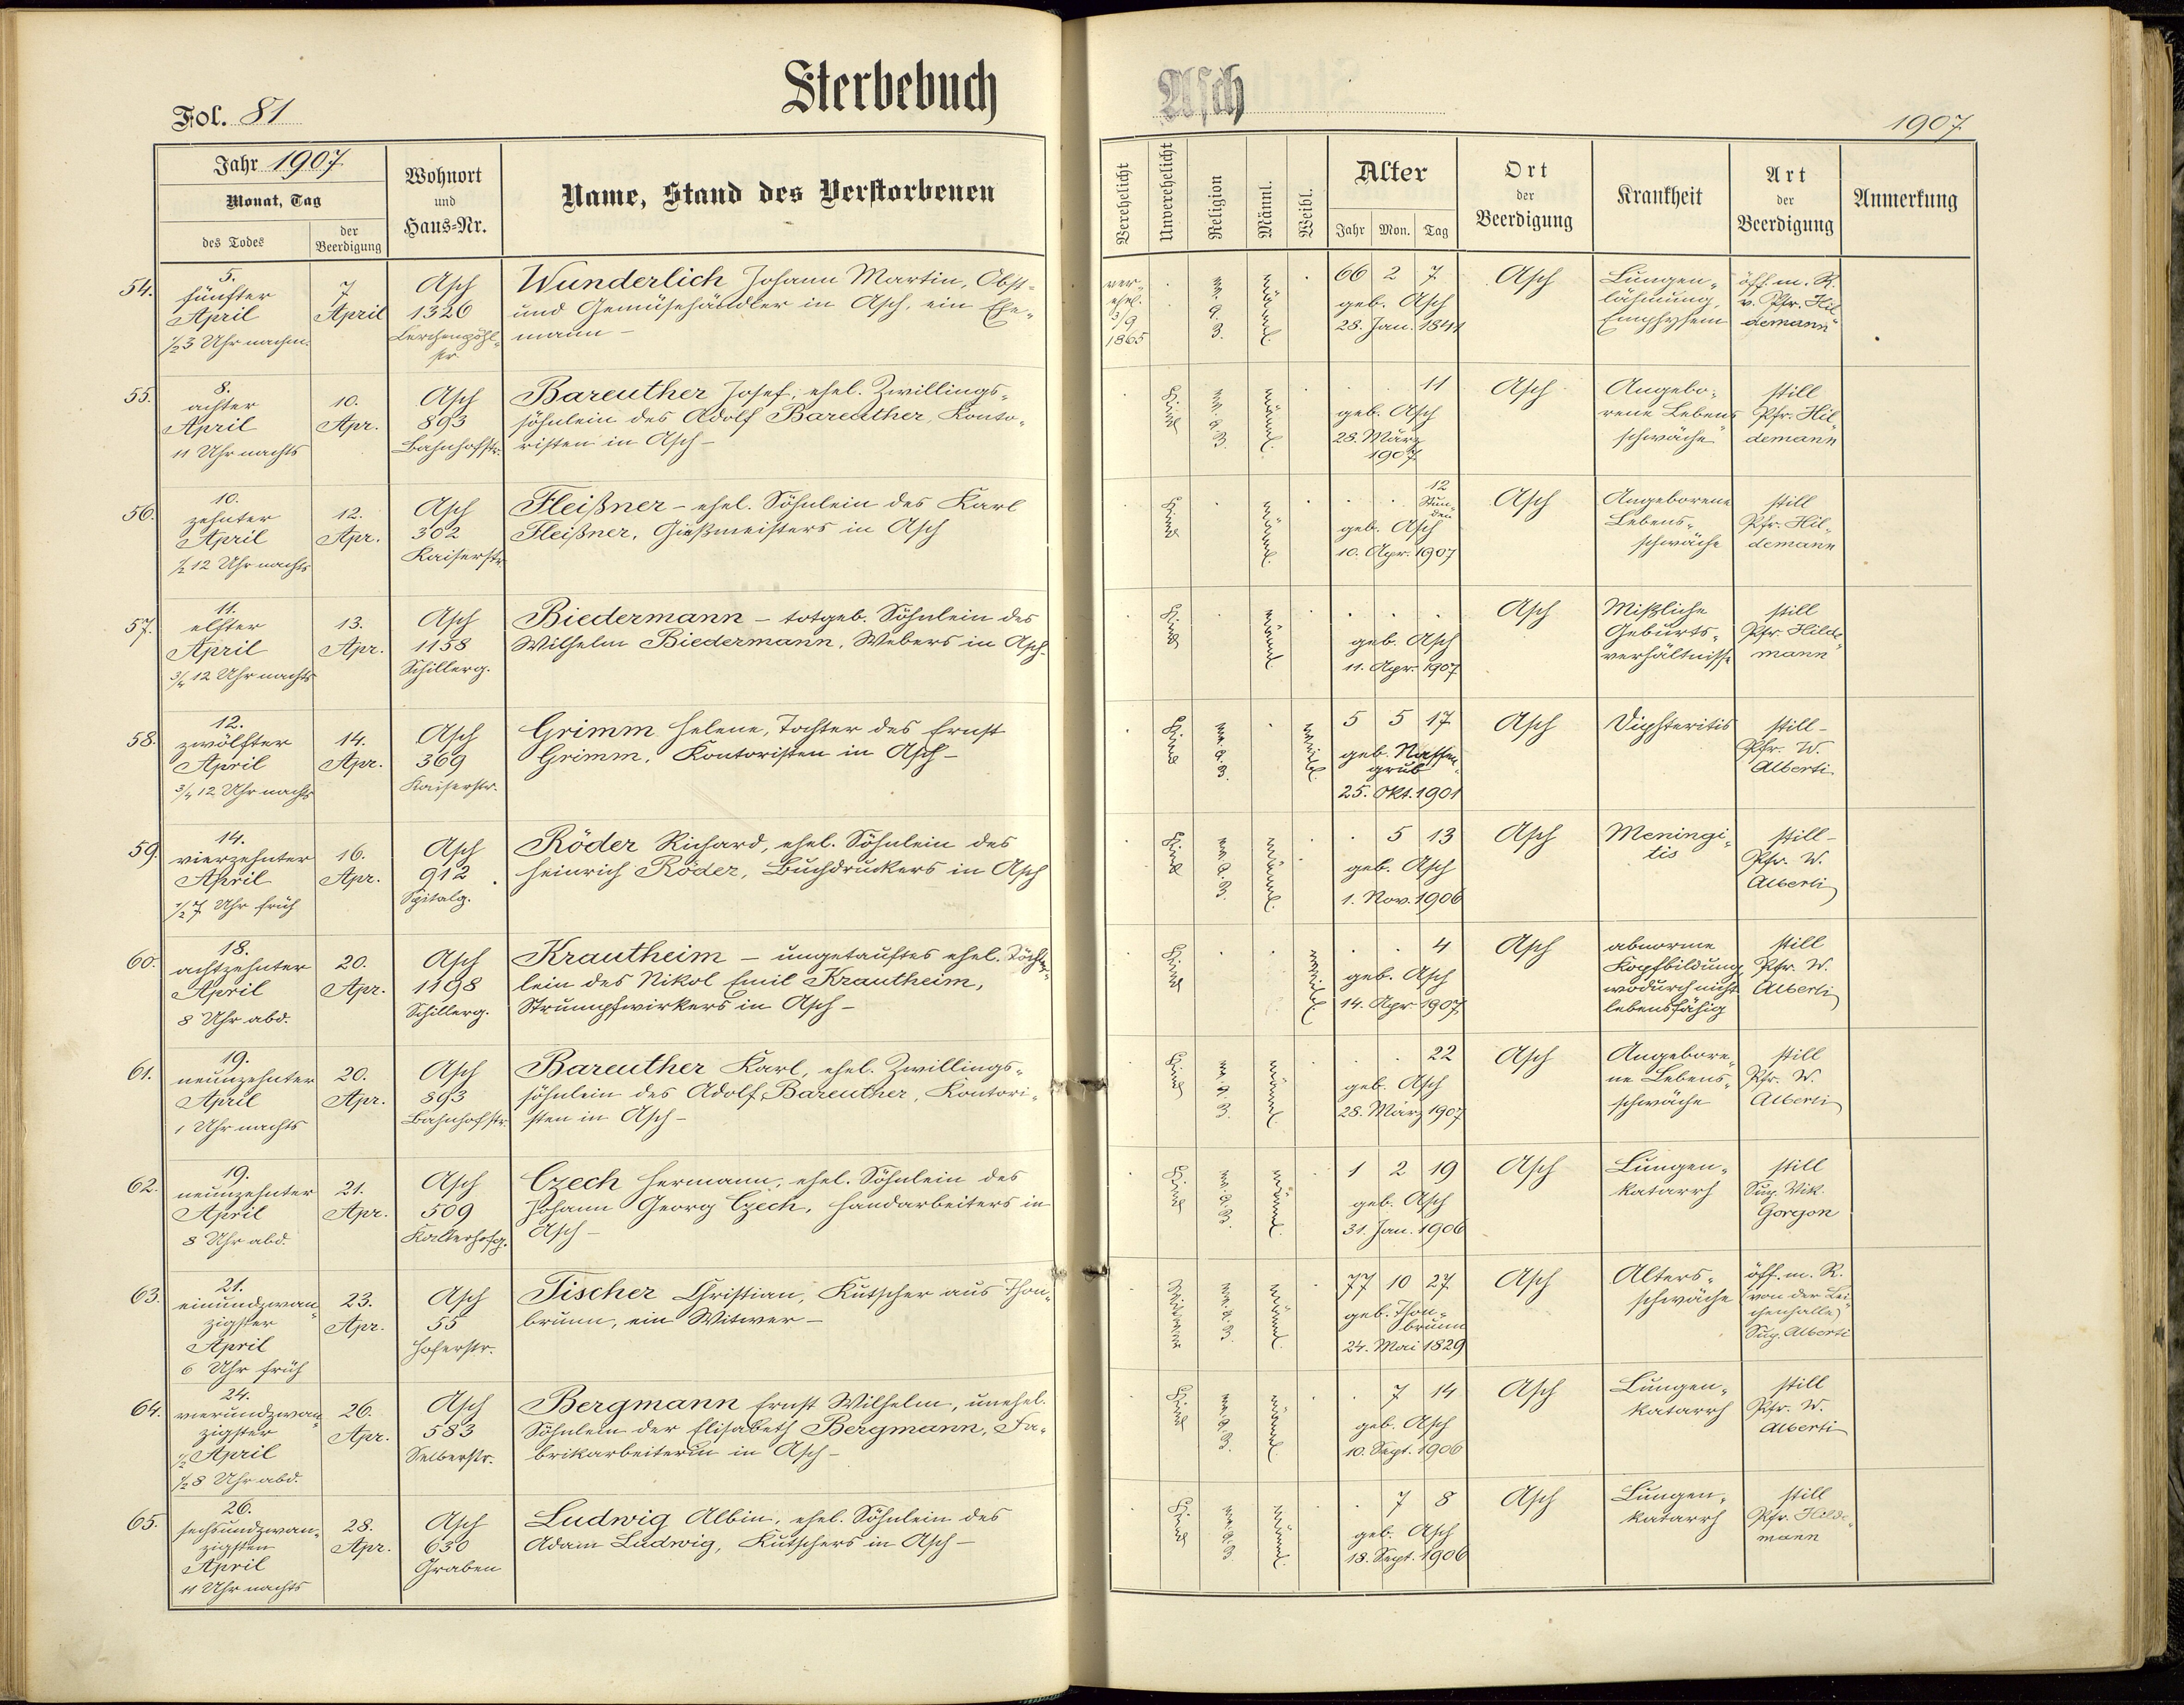 Sterbebuch Asch
Fol. 81
1907
Jahr 1907
Monat, Tag
des Todes
der Beerdigung
Wohnort und Haus-Nr.
Name, Stand des Verstorbenen
Verehelicht
Unverehelicht
Religion
Männl.
Weibl.
Alter
Jahr Mon. Tag
Ort der Beerdigung
Krankheit
Art der Beerdigung
Anmerkung
54.
5.
fünfter
April
½3 Uhr nachm.
7
April
Asch
1326
Wunderlich Johann Martin, Obst-
und Gemüsehändler in Asch, ein Ehe-
mann –
ver-
ehel.
3/9
1865
männl.
66 2 7
geb. Asch
28. Jan. 1841
Asch
Lungen-
lähmung,
Emphysem
öff. m. R.
v. Pfr. Hil-
demann
55.
8.
achter
April
11 Uhr nachts
10.
Apr.
Asch
893
Bahnhofstr.
Bareuther Josef, ehel. Zwillings-
söhnlein des Adolf Bareuther, Konto-
risten in Asch –
Kind
männl.
11
geb. Asch
28. März
1907
Asch
Angebo-
rene Lebens-
schwäche
still
Pfr. Hil-
demann
56.
10.
zehnter
April
½12 Uhr nachts
12.
Apr.
Asch
302
Kaiserstr.
Fleißner – ehel. Söhnlein des Karl
Fleißner, Gießmeisters in Asch
Kind
männl.
12
Stun-
den
geb. Asch
10. Apr. 1907
Asch
Angeborene
Lebens-
schwäche
still
Pfr. Hil-
demann
57.
11.
elfter
April
¾12 Uhr nachts
13.
Apr.
Asch
1158
Schillerg.
Biedermann – totgeb. Söhnlein des
Wilhelm Biedermann, Webers in Asch-
Kind
männl.
geb. Asch
11. Apr. 1907
Asch
Mißliche
Geburts-
verhältnisse
still
Pfr. Hilde-
mann
58.
12.
zwölfter
April
¾12 Uhr nachts
14.
Apr.
Asch
369
Kaiserstr.
Grimm Helene, Tochter des Ernst
Grimm, Kontoristen in Asch –
Kind
weibl.
5 5 17
geb. Nassen-
grub
25. Okt. 1901
Asch
Diphteritis
still –
Pfr. W.
Alberti
59.
14.
vierzehnter
April
½7 Uhr früh
16.
Apr.
Asch
912
Spitalg.
Röder Richard, ehel. Söhnlein des
Heinrich Röder, Buchdruckers in Asch
Kind
männl.
5 13
geb. Asch
1. Nov. 1906
Asch
Meningi-
tis
still –
Pfr. W.
Alberti
60.
18.
achtzehnter
April
8 Uhr abd.
20.
Apr.
Asch
1198
Schillerg.
Krautheim – ungetauftes ehel. Töchter-
lein des Nikol Emil Krautheim,
Strumpfwirkers in Asch –
Kind
weibl.
4
geb. Asch
14. Apr. 1907
Asch
abnorme
Kopfbildung
wodurch nicht
lebensfähig
still
Pfr. W.
Alberti
61.
19.
neunzehnter
April
1 Uhr nachts
20.
Apr.
Asch
893
Bahnhofstr.
Bareuther Karl, ehel. Zwillings-
söhnlein des Adolf Bareuther, Kontori-
sten in Asch –
Kind
männl.
22
geb. Asch
28. März 1907
Asch
Angebore-
ne Lebens-
schwäche
still
Pfr. W.
Alberti
62.
19.
neunzehnter
April
8 Uhr abd.
21.
Apr.
Asch
509
Czech Hermann, ehel. Söhnlein des
Johann Georg Czech, Handarbeiters in
Asch –
Kind
männl.
1 2 19
geb. Asch
31. Jan. 1906
Asch
Lungen-
katarrh
still
Sup. Vik.
Gorgon
63.
21.
einundzwan-
zigster
April
6 Uhr früh
23.
Apr.
Asch
55
Hoferstr.
Fischer Christian, Kutscher aus Thon-
brunn, ein Witwer –
Witwer
männl.
77 10 27
geb. Thon-
brunn
24. Mai 1829
Asch
Alters-
schwäche
öff. m. R.
(von der Lei-
chenhalle)
Sup. Alberti
64.
24.
vierundzwan-
zigster
April
½8 Uhr abd.
26.
Apr.
Asch
583
Selberstr.
Bergmann Ernst Wilhelm, unehel.
Söhnlein der Elisabeth Bergmann, Fa-
brikarbeiterin in Asch –
Kind
männl.
7 14
geb. Asch
10. Sept. 1906
Asch
Lungen-
katarrh
still
Pfr. W.
Alberti
65.
26.
sechsundzwan-
zigsten
April
11 Uhr nachts
28.
Apr.
Asch
630
Graben
Ludwig Albin, ehel. Söhnlein des
Adam Ludwig, Kutschers in Asch –
Kind
männl.
7 8
geb. Asch
18. Sept. 1906
Asch
Lungen-
katarrh
still
Pfr. Hilde-
mann